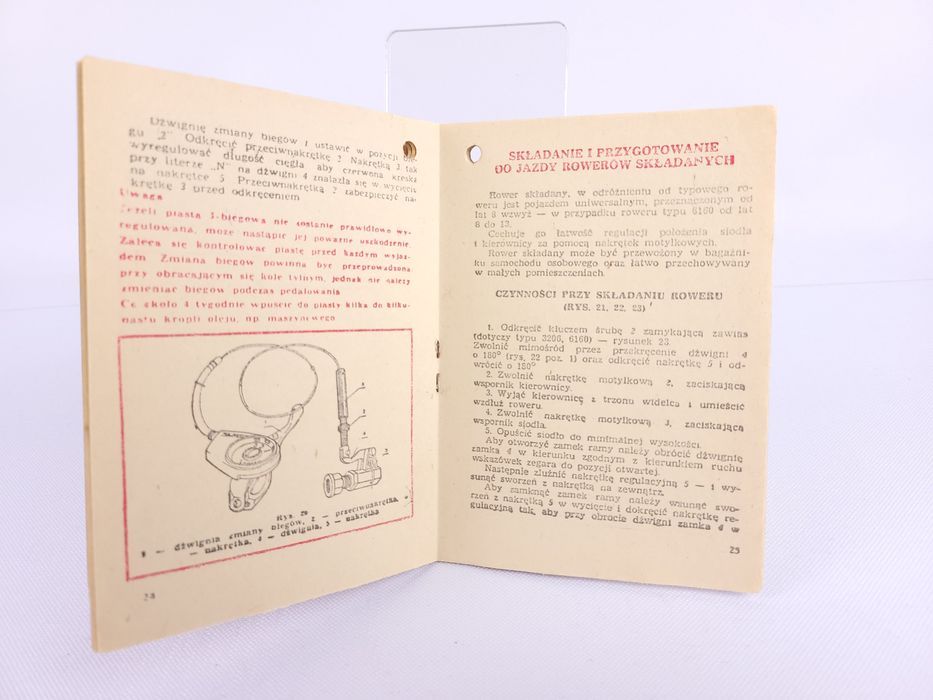 Dźwignię zmiany biegów 1 ustawić w pozycji bie-
gu „2" Odkręcić przeciwnakrętkę 2 Nakrętką 3 tak
wyregulować długość cięgła aby czerwona kreska
przy literze „N" na dźwigni 4 znalazła się w wycięciu
na nakrętce 5 Przeciwnakrętką 2 zabezpieczyć na-
krętkę 3 przed odkręceniem
Uwaga
Jeżeli piasta 3-biegowa nie zostanie prawidłowo wy-
regulowana, może nastąpić jej poważne uszkodzenie.
Zaleca się kontrolować piastę przed każdym wyjaz-
dem Zmiana biegów powinna być przeprowadzona
przy obracającym się kole tylnym, jednak nie należy
zmieniać biegów podczas pedałowania
Co około 4 tygodnie wpuście do piasty kilka do kilku-
nastu kropli oleju, np. maszynowego
Rys 20
1 — dźwignia zmiany biegów, 2 — przeciwnakrętka,
— nakrętka, 4 — dźwignia, 5 — nakrętka
SKŁADANIE I PRZYGOTOWANIE
DO JAZDY ROWERÓW SKŁADANYCH
Rower składany, w odróżnieniu od typowego ro-
weru jest pojazdem uniwersalnym, przeznaczonym od
lat 8 wzwyż — w przypadku roweru typu 6160 od lat
8 do 13.
Cechuje go łatwość regulacji położenia siodła
i kierownicy za pomocą nakrętek motylkowych.
Rower składany może być przewożony w bagażni-
ku samochodu osobowego oraz łatwo przechowywany
w małych pomieszczeniach
CZYNNOŚCI PRZY SKŁADANIU ROWERU
(RYS. 21, 22, 23)
1. Odkręcić kluczem śrubę 2 zamykającą zawias
(dotyczy typu 3206, 6160) — rysunek 23.
Zwolnić mimośród przez przekręcenie dźwigni 4
o 180° (rys. 22 poz. 1) oraz odkręcić nakrętkę 5 i od-
wrócić o 180°
2. Zwolnić nakrętkę motylkową 2, zaciskającą
wspornik kierownicy.
3. Wyjąć kierownicę z trzonu widelca i umieścić
wzdłuż roweru.
4. Zwolnić nakrętkę motylkową 3, zaciskającą
wspornik siodła.
5. Opuścić siodło do minimalnej wysokości.
Aby otworzyć zamek ramy należy obrócić dźwignię
zamka 4 w kierunku zgodnym z kierunkiem ruchu
wskazówek zegara do pozycji otwartej.
Następnie zluźnić nakrętkę regulacyjną 5 — i wy-
sunąć sworzeń z nakrętką na zewnątrz.
Aby zamknąć zamek ramy należy wsunąć swo-
rzeń z nakrętką 5 w wycięcie i dokręcić nakrętkę re-
gulacyjną tak, aby przy obrocie dźwigni zamka 4 w
29